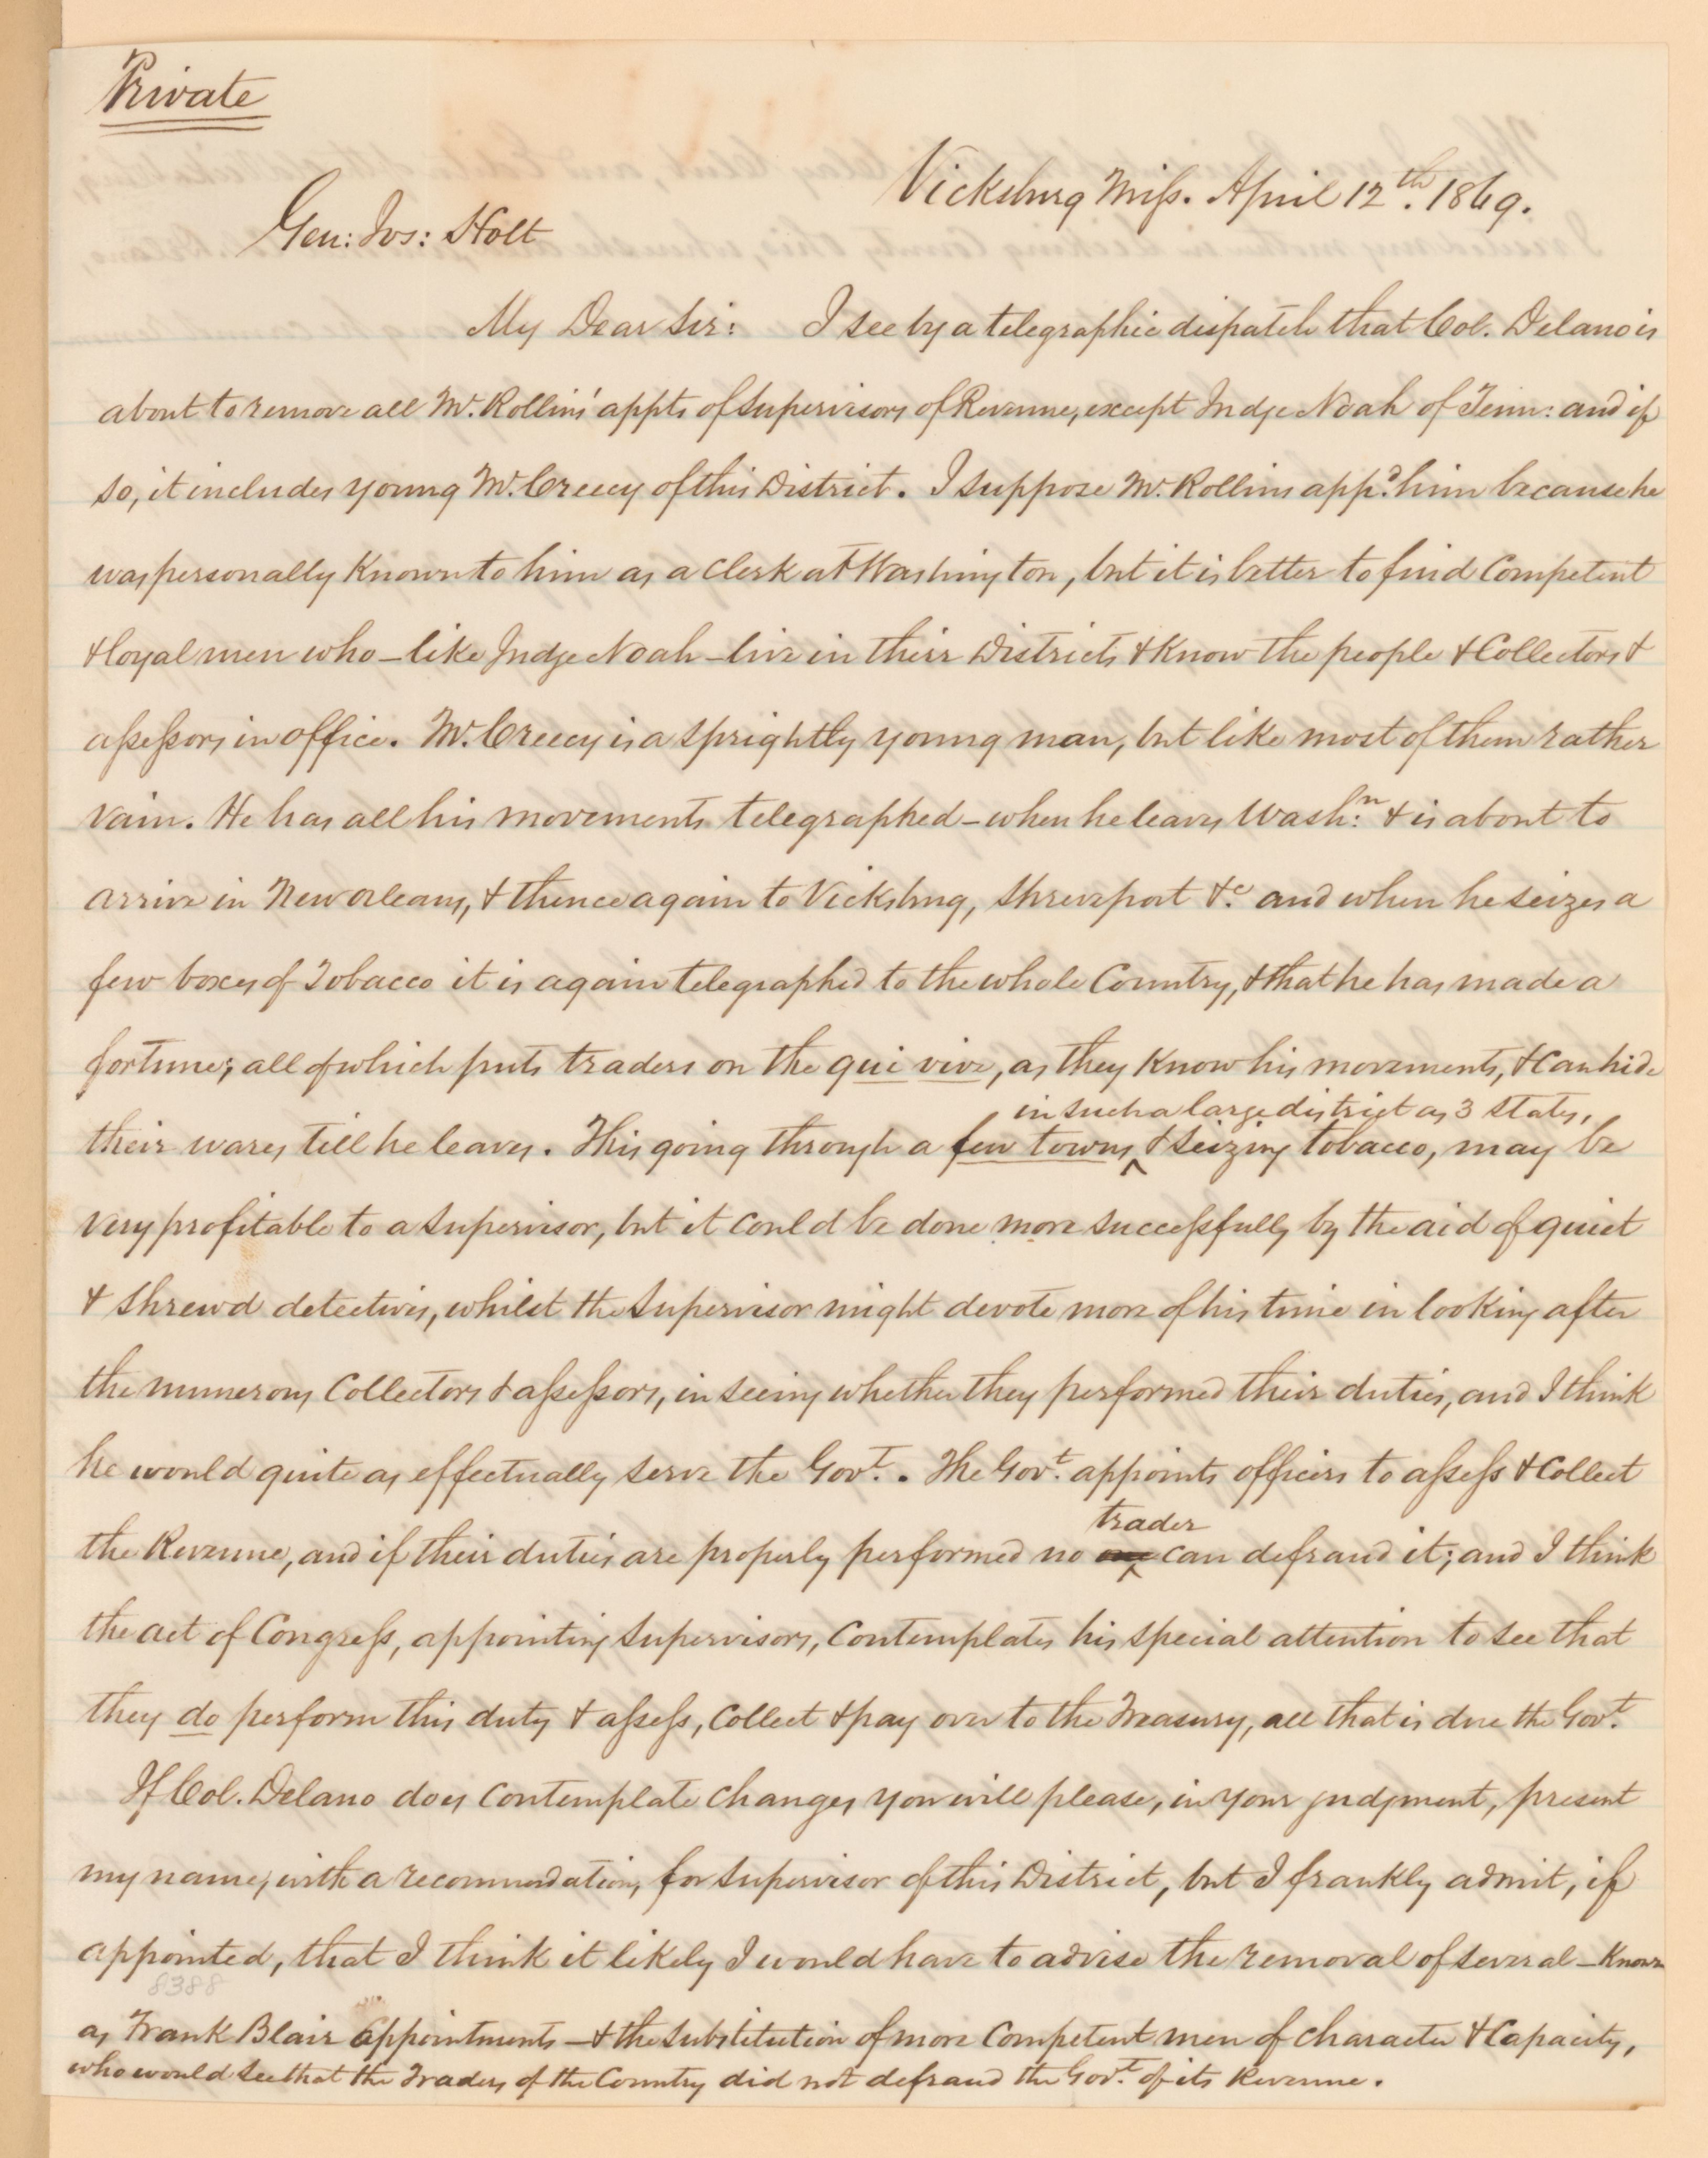 Private
Vicksburg Miss. April 12th. 1869.
Gen: Jos: Holt
My Dear Sir: I see by a telegraphic dispatch that Col. Delano is
about to remove all Mr. Rollins' appts of Supervisors of Revenue, except Judge Noah of Tenn: and if
so, it includes young Mr. Creecy of this District. I suppose Mr. Rollins appd. him because he
was personally Known to him as a Clerk at Washington, but it is better to find Competent
& loyal men who - like Judge Noah - live in their Districts & Know the people & Collectors &
assessors in office. Mr. Creecy is a sprightly young man, but like most of them rather
vain. He has all his movements telegraphed - when he leaves Washn: & is about to
arrive in New orleans, & thence again to Vicksbug, Shreveport &c. and when he seizes a
few boxes of Tobacco it is again telegraphed to the whole Country, & that he has made a
fortune; all of which puts traders on the qui vive, as they Know his movements, & Can hide
in such a large district as 3 States,
their wares till he leaves. This going through a few towns, & seizing tobacco, may be
very profitable to a Supervisor, but it could be done more successfully by the aid of quiet
& shrewd detectives, whilst the Supervisor might devote more of his time in looking after
the numerous Collectors & assessors, in seeing whether they performed their duties, and I think
he would quite as effectually serve the Govt. The Govt. appoints officers to assess & Collect
trader
the Revenue, and if their duties are properly performed no one can defraud it; and I think
the act of Congress, appointing Supervisors, Contemplates his special attention to see that
they do perform this duty & assess, Collect & pay over to the Treasury, all that is due the Govt.
If Col. Delano does Contemplate Changes you will please, in your judgment, present
my name, with a recommendation, for Supervisor of this District, but I frankly admit, if
appointed, that I think it likely I would have to advise the removal of several - Known
8388
as Frank Blair appointments - & the Substitution of more Competent men of character & Capacity,
who would see that the Traders of the Country did not defraud the Govt. of its Revenue.